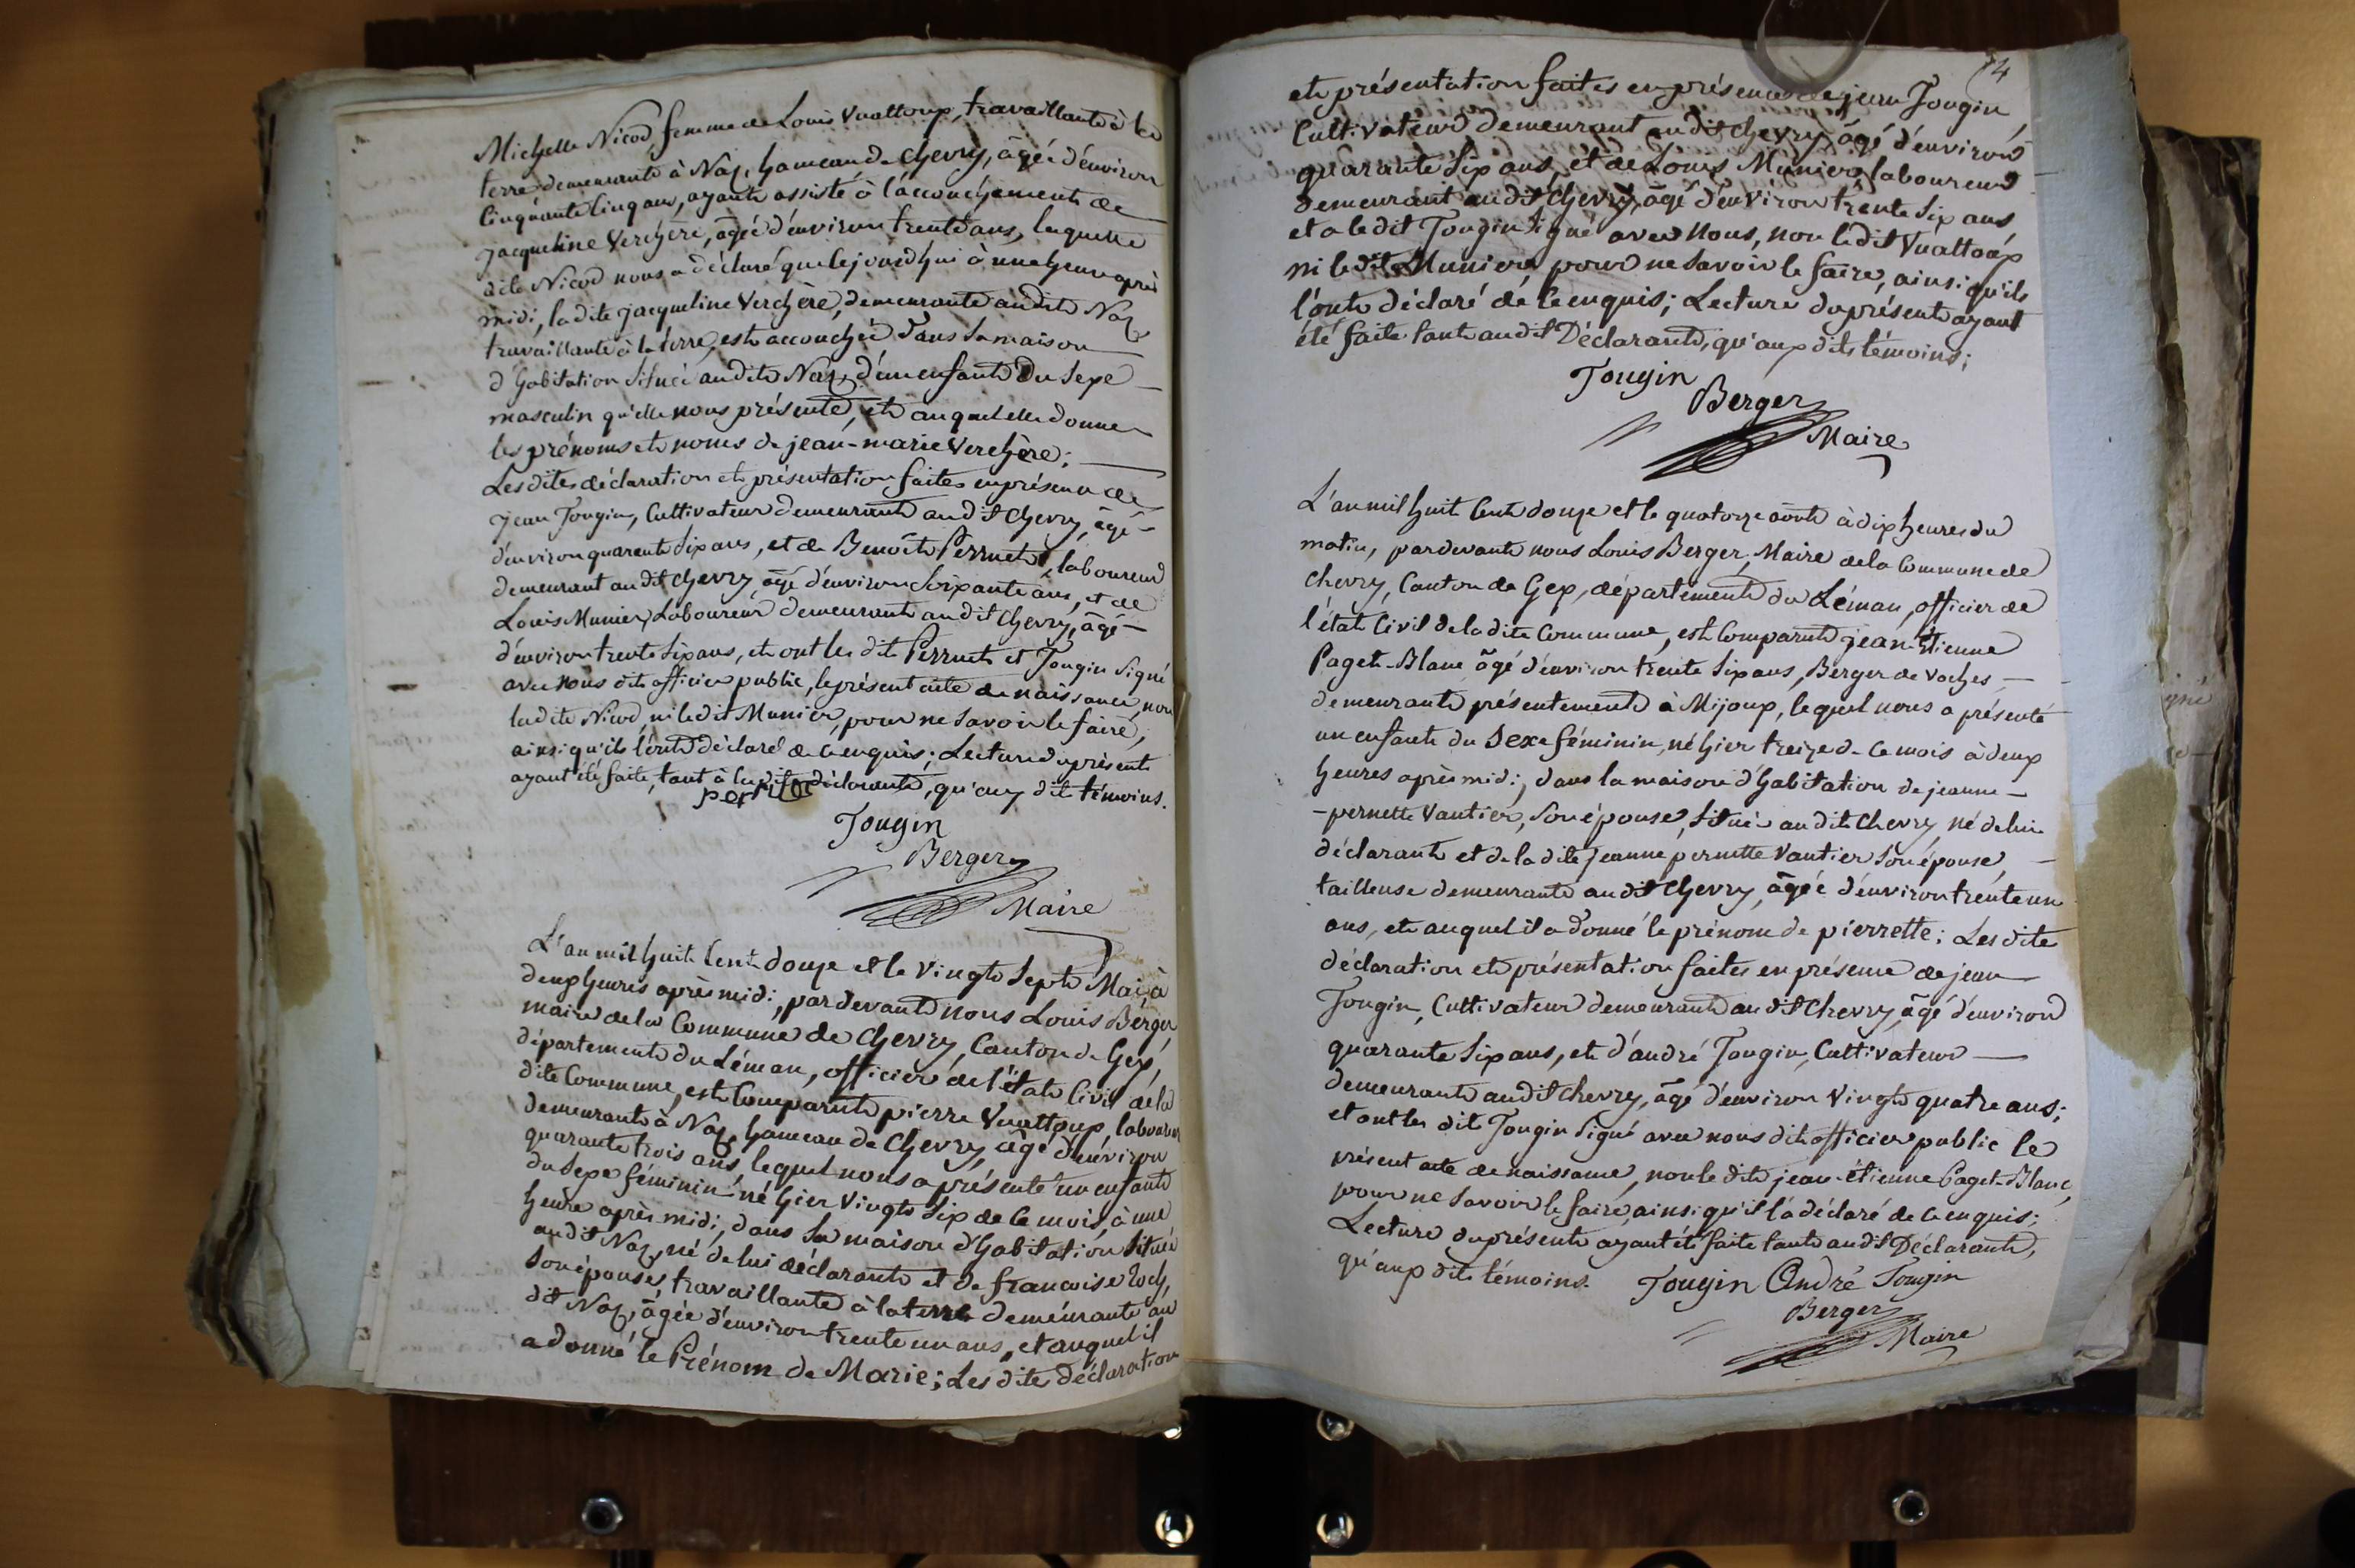 Michelle Nicod, femme de Louis Vuattoux, travaillante à la
terre demeurante à Naz, hameau de Chevry, âgée d'environ
Cinquante Cinq ans, ayante assisté à l'accouchement de
jacqueline Verchère, âgée d'environ trente ans, laquelle
dite Nicod nous a déclaré que lejourd'hui à une heure après
midi, la dite jacqueline Verchère, demeurante audit Naz
travaillante à la terre, est accouchée dans sa maison
d'habitation Située audit Naz, d'un enfant du Sexe
masculin qu'elle nous présente, et auquel elle donne
les prénoms et noms de jean-marie Verchère;
Les dites déclaration et présentation faites en présence de
jean Tougin, Cultivateur demeurant audit Chevry, âgé
d'environ quarante Six ans, et de Benoît Perruet, laboureur
demeurant audit Chevry, âgé d'environ Soixante ans, et de
Louis Munier, Laboureur demeurant audit Chevry, âgé
d'environ trente Six ans, et ont les dits Perruet et Tougin Signé
avec Nous dit officier public, le présent acte de naissance, non
ladite Nicod, ni ledit Munier, pour ne Savoir le faire,
ainsi qu'ils l'ont déclaré de ce enquis; Lecture du présent
ayant été faite, tant à la dite déclarante, qu'aux dits témoins.
Tougin
Berger
Maire
L'an mil huit Cent douze et le vingt Sept Mai, à
deux heures après midi, pardevant nous Louis Berger
maire de la Commune de Chevry, Canton de Gex,
département du Léman, officier de l'état Civil de la
dite Commune, est Comparut pierre Vuattoux, laboureur
demeurant à Naz, hameau de Chevry, âgé d'environ
quarante trois ans, lequel nous a présenté un enfant
du Sexe féminin né hier Vingt Six de Ce mois, à une
heure après midi, dans Sa maison d'habitation Située
audit Naz, né de lui déclarant et de françoise Roch,
Son épouse, travaillante à la terre demeurante au
dit Naz, âgée d'environ trente un ans, et auquel il
a donné le Prénom de Marie; Les dites déclaration
74
et présentation faites en présence de jean Tougin
Cultivateur demeurant audit Chevry, âgé d'environ
quarante Six ans, et de Louis Munier, laboureur
demeurant audit Chevry, âgé d'environ trente Six ans,
et a ledit Tougin Signé avec Nous, non ledit Vuattoux
ni ledit Munier, pour ne Savoir le faire, ainsi qu'ils
l'ont déclaré de Ce enquis; Lecture du présent ayant
été faite tant audit Déclarant, qu'aux dits témoins;
Tougin
Berger
Maire
L'an mil huit Cent douze et le quatorze août à dix heures du
matin, pardevant nous Louis Berger, Maire de la Commune de
Chevry, Canton de Gex, département du Léman, officier de
l'état Civil de la dite Commune, est Comparut jean-Etienne
Paget-Blanc âgé d'environ trente Six ans, Berger de Vaches,
demeurant présentement à Mijoux, lequel nous a présenté
un enfant du Sexe féminin, né hier treize de Ce mois à deux
heures après midi, dans la maison d'habitation de jeanne
-pernette Vautier, Son épouse, Située audit Chevry, né de lui
déclarant et de la dite jeanne pernette Vautier Son épouse,
tailleuse demeurante audit Chevry, âgée d'environ trente un
ans, et auquel il a donné le prénom de pierrette; Les dite
déclaration et présentation faites en présence de jean
Tougin, Cultivateur demeurant audit Chevry, âgé d'environ
quarante Six ans, et d'andré Tougin, Cultivateur
demeurant audit Chevry, âgé d'environ Vingt quatre ans;
et ont les dit Tougin Signé avec nous dit officier public le
présent acte de naissance, non le dit jean-étienne Paget-Blanc,
pour ne Savoir le faire, ainsi qu'il l'a déclaré de ce enquis;
Lecture du présent ayant été faite tant audit Déclarant,
qu'aux dits témoins. Tougin André Tougin
Berger
Maire